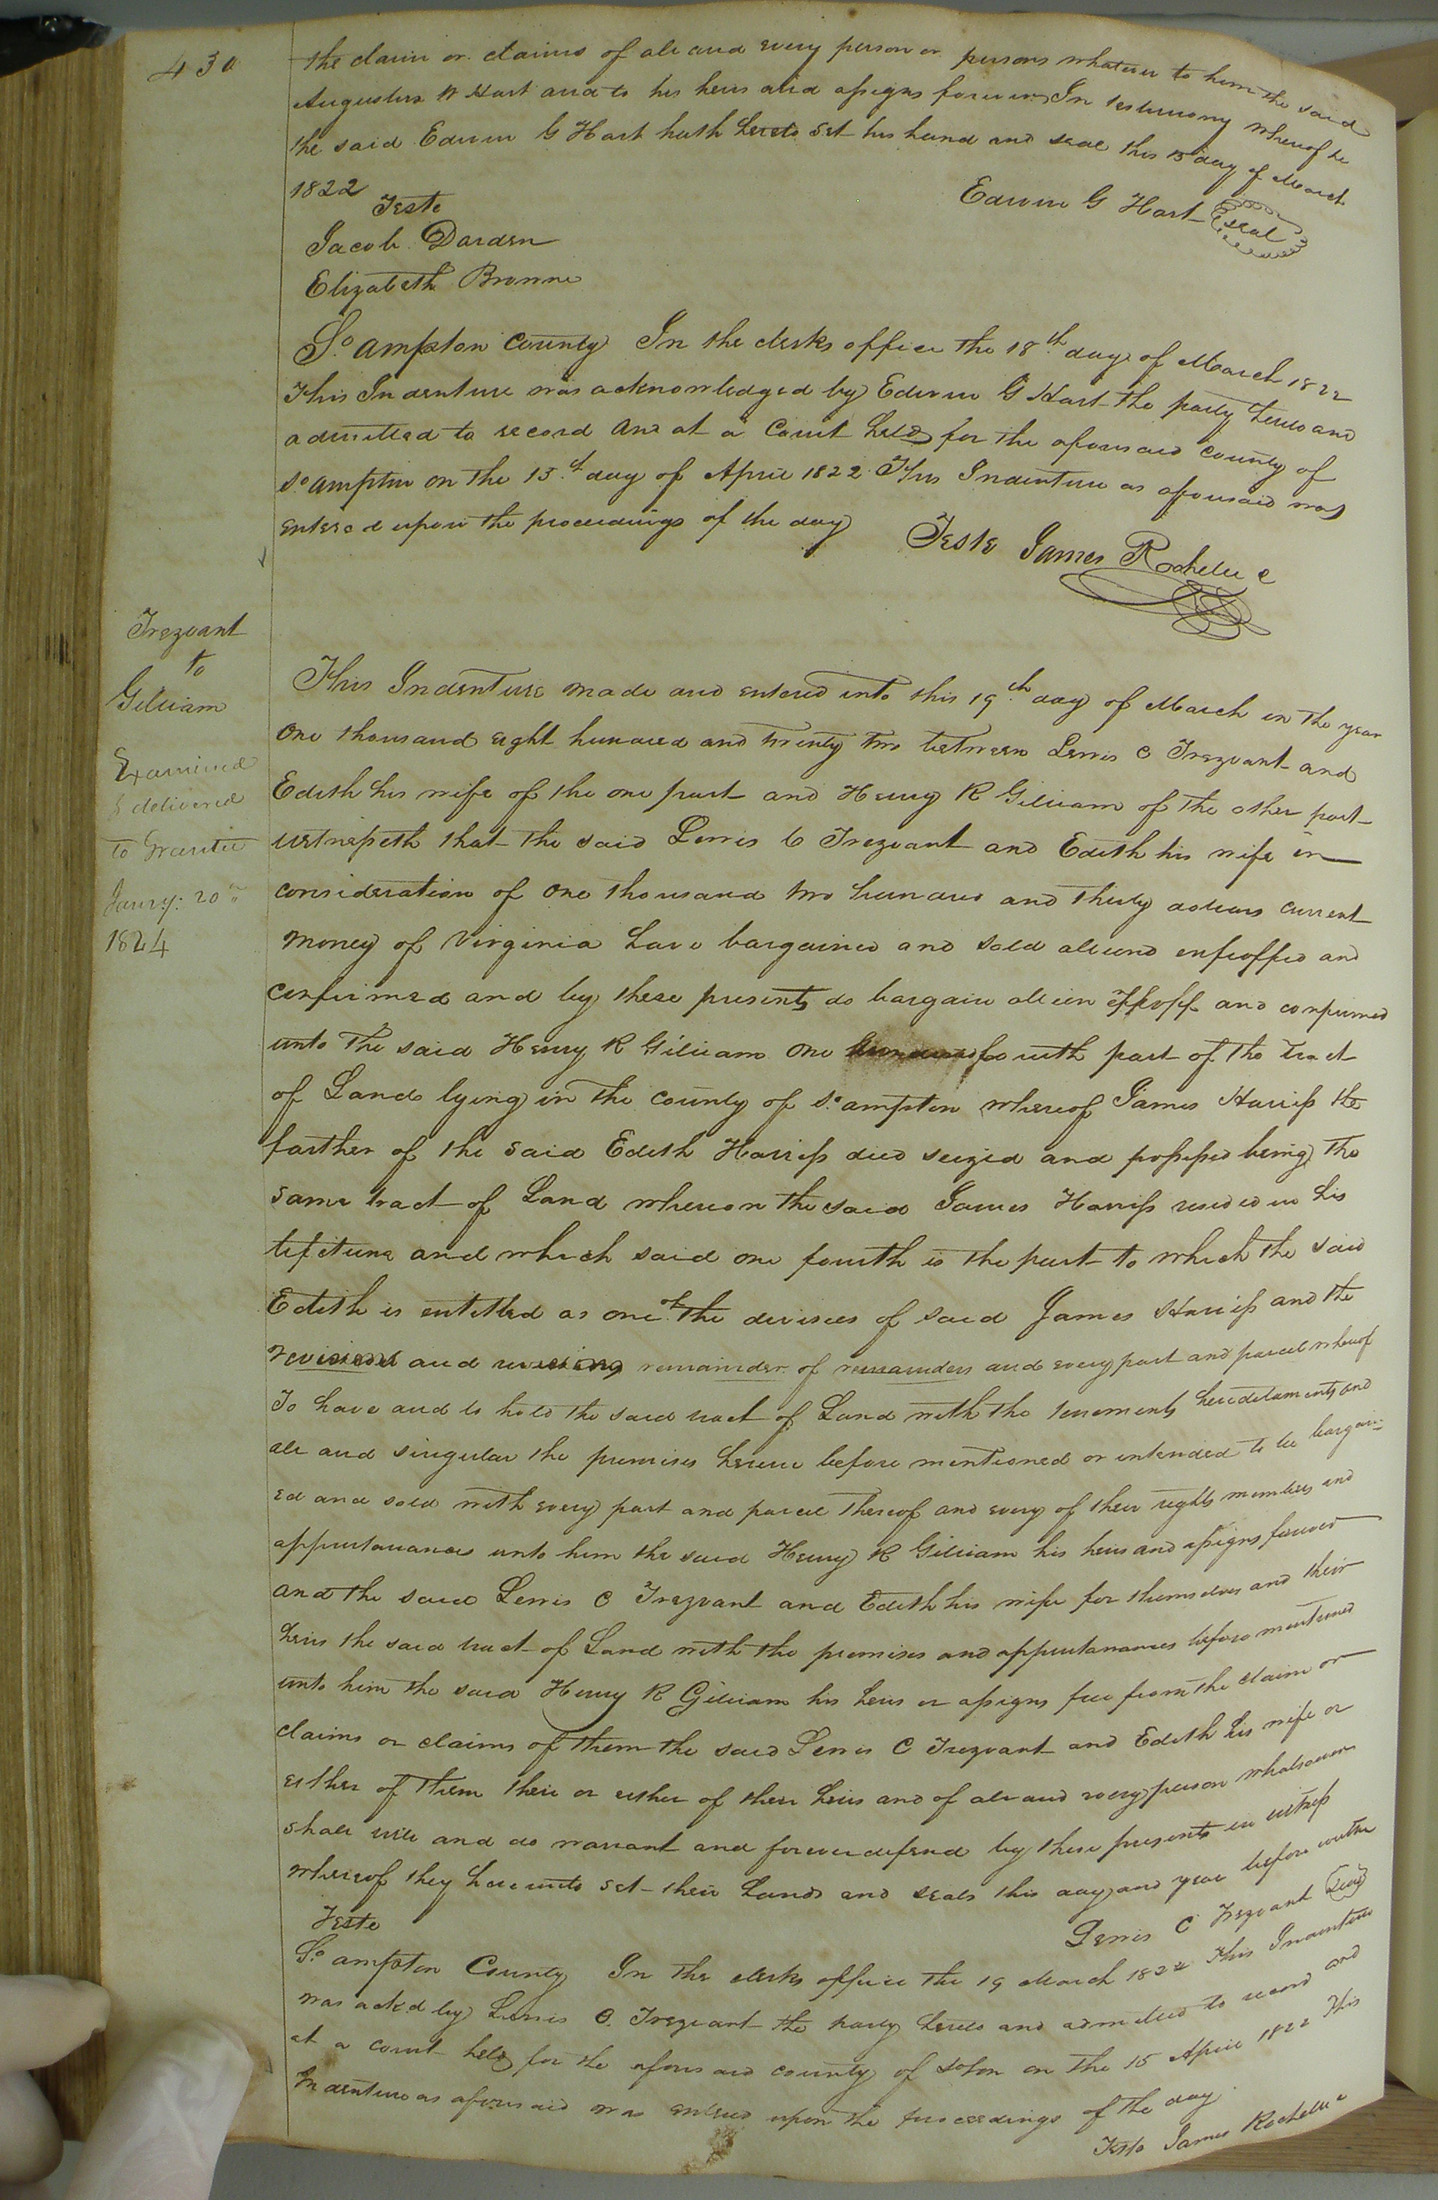 430
the claim or claims of all and every person or persons whatever to him the said
Augustus W Hart and to his heirs and assigns forever In testimony whereof he
the said Edwin G Hart hath hereto set his hand and seal this 15 day of March
1822
Teste
Edwin G Hart Seal
Jacob Darden
Elizabeth Browne
So. ampton County In the clerks office the 18th day of March 1822
This Indenture was acknowledged by Edwin G Hart the party hereto and
admitted to record and at a Court held for the aforesaid County of
So. ampton on the 15th day of April 1822 This Indenture as aforesaid was
entered upon the proceedings of the day
Teste James Rochelle c
Trezvant
to
Gilliam
Examined
& delivered
to Grantee
Janry: 20th
1824
This Indenture made and entered into this 19th day of March in the year
One thousand eight hundred and twenty two between Lewis C Trezvant and
Edith his wife of the one part and Henry R Gilliam of the other part
wetnesseth that the said Lewis C Trezvant and Edith his wife in
consideration of One thousand two hundred and thirty dollars current
money of Virginia have bargained and sold aliend enfeoffed and
confirmed and by these presents do bargain alien and confirmed
unto the said Henry R Gilliam one fourth part of the tract
of Land lying in the county of So. ampton whereof James Harriss the
farther of the said Edith Harriss died seized and possessed being the
same tract of Land whereon the said James Harriss resided in his
lifetime and which said one fourth is the part to which the said
Edith is entitled as one of the devisees of said James Harriss and the
revisions and revising remainder of remainders and every part and parcel whereof
To have and to hold the said tract of Land with the tenements hereditaments and
all and singular the premises herein before mentioned or intended to be bargain=
ed and sold with every part and parcel thereof and every of their rights members and
appurtanances unto him the said Henry R Gilliam his heirs and assigns forever
and the said Lewis C Trezvant and Edith his wife for themselves and their
heirs the said tract of Land with the premises and appurtanances before mentioned
unto him the said Henry R Gilliam his heirs or assigns free from the claim or
claims or claims of them the said Lewis C Trezvant and Edith his wife or
either of them their or either of their heirs and of all and every person whatsoever
shall will and do warrant and forever defend by these presents in witness
whereof they hereunto set their hands and seals this day and year before written
Teste
Lewis C Trezvant Seal
So. ampton County In the clerks office the 19 March 1822 This Indenture
was ackd by Lewis C. Trezvant the party hereto and admitted to record and
at a court held for the aforesaid county of Soton on the 15 April 1822 This
Indenture as aforesaid was entered upon the proceedings of the day
Teste James Rochelle c